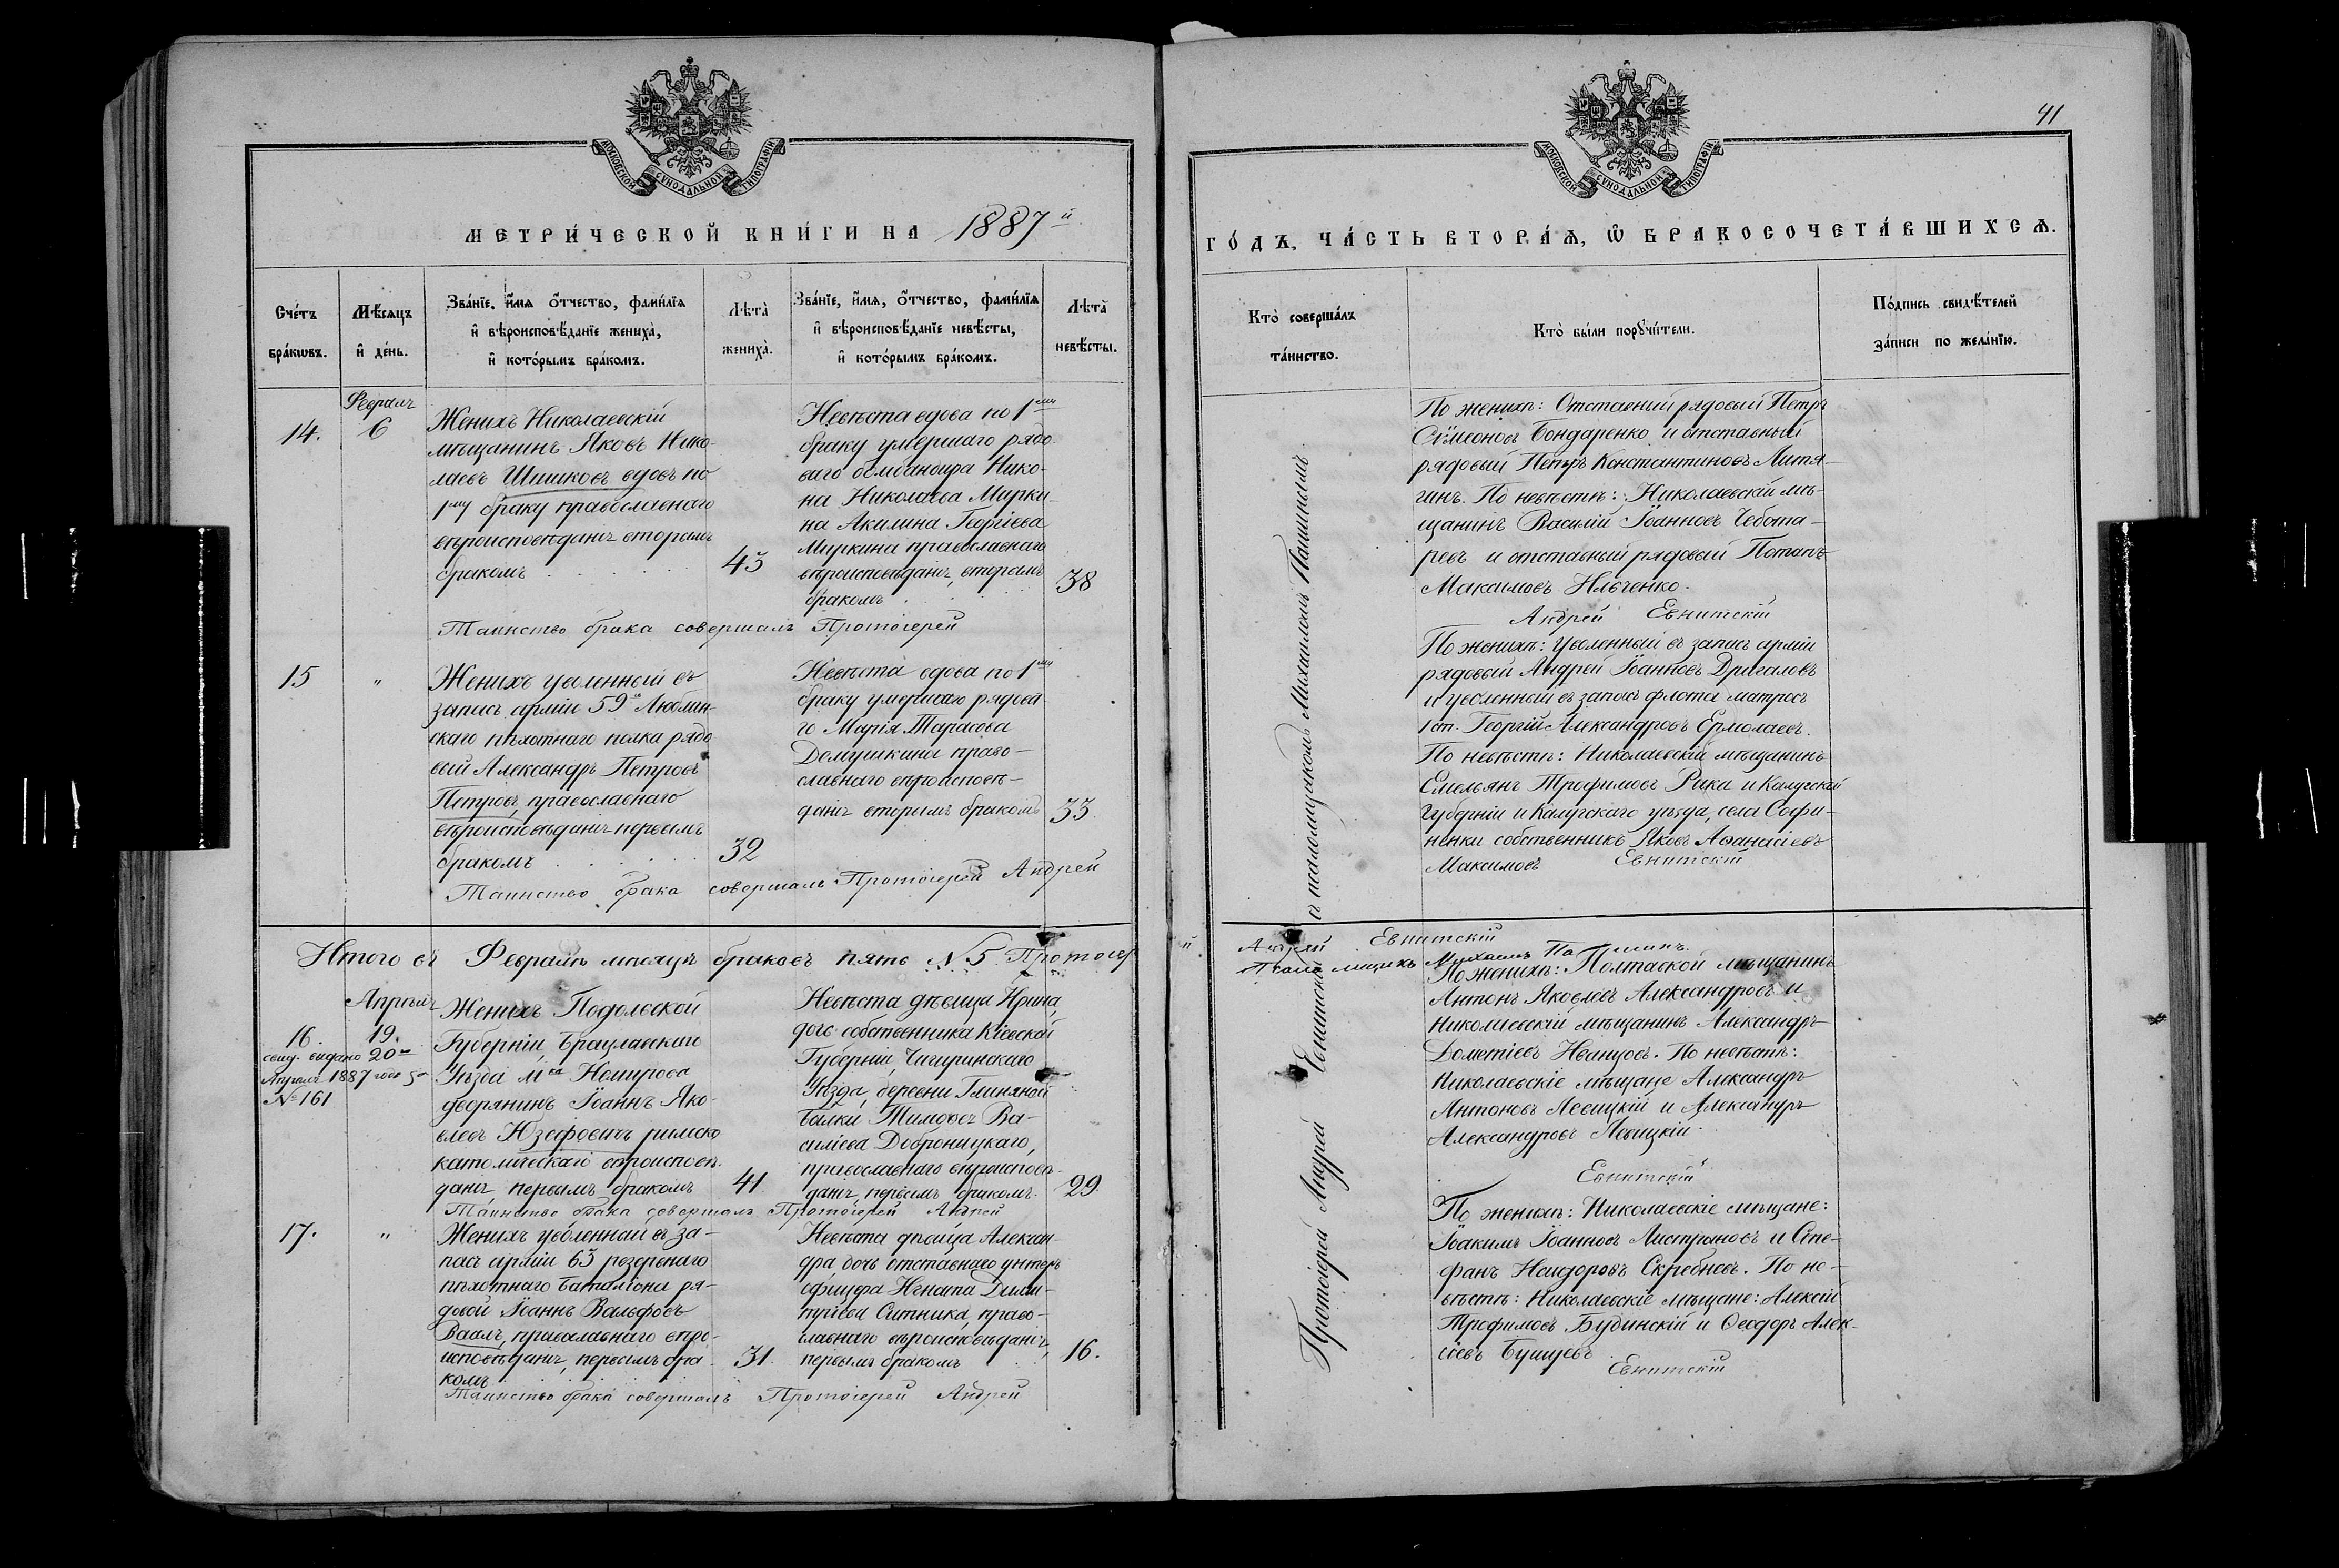 МОСКОВСКОЙ СУНОДАЛЬНОЙ ТИПОГРАФІИ
МЕТРИ́ЧЕСКОЙ КНИ́ГИ НА 1887й
Сче́тъ
бра́кωвъ.
Мѣ́сяцъ
и҆ де́нь.
Зва́нїе, и҆́мя ѻ҆́тчество, фами́лїя
и҆ вѣроисповѣ́данїе жениха̀,
и҆ кото́рымъ бра́комъ.
Лѣ́та
жениха̀.
Зва́нїе, и҆́мя, ѻ҆́тчество, фами́лїя
и҆ вѣроисповѣ́данїе невѣ́сты,
и҆ кото́рымъ бра́комъ.
Лѣ́та
невѣ́сты.
14.
Февраль
6
Женихъ Николаевскій
мѣщанинъ Яковъ Нико-
лаевъ Шишковъ вдовъ по
1му браку православнаго
вѣроисповѣданія вторымъ
бракомъ
43
Невѣста вдова по 1му
браку умершаго рядо
ваго бомбандира Нико-
на Николаева Мирки-
на Акилина Георгіева
Миркина православнаго
вѣроисповѣданія, вторымъ
бракомъ
38
Таинство брака совершалъ Протоіерей
15
"
Женихъ уволенный въ
запасъ арміи 59го Люблин-
скаго пѣхотнаго полка рядо
вый Александръ Петровъ
Петровъ, православнаго
вѣроисповѣданія первымъ
бракомъ
32
Невѣста вдова по 1му
браку умершаго рядова
го Марія Тарасова
Демушкина право-
славнаго вѣроисповѣ-
данія вторымъ бракомъ
33
Таинство брака совершалъ Протоіерей Андрей
Итого въ Февралѣ мѣсяцѣ браковъ пять №5. Протоіер
16.
Апрѣль
19.
свид. выдано 20го
Апрѣля 1887 года за
№161
Женихъ Подольской
Губерніи, Брацлавскаго
Уѣзда мка Немирова
дворянинъ Іоаннъ Яко-
влевъ Юзефовичъ римско
католическаго вѣроисповѣ-
данія, первымъ бракомъ
41
Невѣста дѣвица Ирина,
дочь собственника Кіевской
Губерніи, Чигиринскаго
Уѣзда, деревни Глиняной
балки Тимофея Ва-
силіева Доброницкаго,
православнаго вѣроисповѣ-
данія, первымъ бракомъ.
29
Таинство брака совершалъ Протоіерей Андрей
17.
"
Женихъ уволенный въ за-
пасъ арміи 63 резервнаго
пѣхотнаго баталіона ря-
довой Іоаннъ Вальфовъ
Вааль, православнаго вѣро-
исповѣданія, первымъ бра-
комъ
31.
Невѣста дѣвица Алексан-
дра дочь отставнаго унтеръ
офицера Игната Дими-
тріева Ситника, право-
славнаго вѣроисповѣданія,
первымъ бракомъ
16.
Таинство брака совершалъ Протоіерей Андрей
41
МОСКОВСКОЙ СУНОДАЛЬНОЙ ТИПОГРАФІИ
ГО́ДЪ, ЧА́СТЬ ВТОРА́Ѧ, Ѽ БРАКОСОЧЕТА́ВШИХСѦ.
Кто̀ соверша́лъ
та́инство.
Кто̀ бы́ли поручи́тели.
По́дпись свидѣ́телей
за́писи по жела́нїю.
Протоіерей Андрей Евнитскій съ псаломщикомъ Михаиломъ Пашинымъ
По женихѣ: Отставный рядовый Петръ
Сѵмеоновъ Бондаренко и отставный
рядовый Петръ Константиновъ Литя-
гинъ. По невѣстѣ: Николаевскій мѣ-
щанинъ Василій Іоанновъ Чебота-
ревъ и отставный рядовый Потапъ
Максимовъ Ильченко.
Андрей Евнитскій
По женихѣ: Уволенный въ запасъ арміи
рядовый Андрей Іоанновъ Дригаловъ
и уволенный въ запасъ флота матросъ
1 ст. Георгій Александровъ Ермолаевъ.
По невѣстѣ: Николаевскій мѣщанинъ
Емельянъ Трофимовъ Рака и Калужской
Губерніи и Калужскаго уѣзда, села Софи-
ненки собственникъ Яковъ Аѳанасіевъ
Максимовъ
Евнитскій
й Андрей Евнитскій
Псаломщикъ Михаилъ Пашинъ.
По женихѣ: Полтавской мѣщанинъ
Антонъ Яковлевъ Александровъ и
Николаевскій мѣщанинъ Александръ
Дометіевъ Иванцовъ. По невѣстѣ:
Николаевскіе мѣщане Александръ
Антоновъ Левицкій и Александръ
Александровъ Левицкій.
Евнитскій
По женихѣ: Николаевскіе мѣщане:
Іоакимъ Іоанновъ Листрановъ и Сте-
фанъ Исидоровъ Скребневъ. По не-
вѣстѣ: Николаевскіе мѣщане: Алексій
Трофимовъ Будинскій и Ѳеодоръ Алек-
сіевъ Бушуевъ
Евнитскій